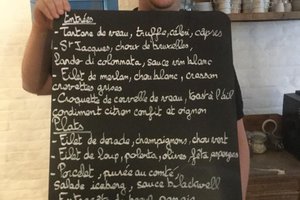 Entrées
- Tartare de veau, truffe, céleri, câpres
- St Jacques, choux de bruxelles,
lardo di colonnata, sauce vin blanc
- Filet de merlan, chou blanc, cresson
crevettes grises
- Croquette de cervelle de veau, toast à l'ail
condiment citron confit et oignon
Plats
- Filet de dorade, champignons, chou vert
- Filet de loup, polenta, olives, fêta, asperges
- Porcelet, purée au comté,
salade iceberg, sauce blackwell
- Entrecôte